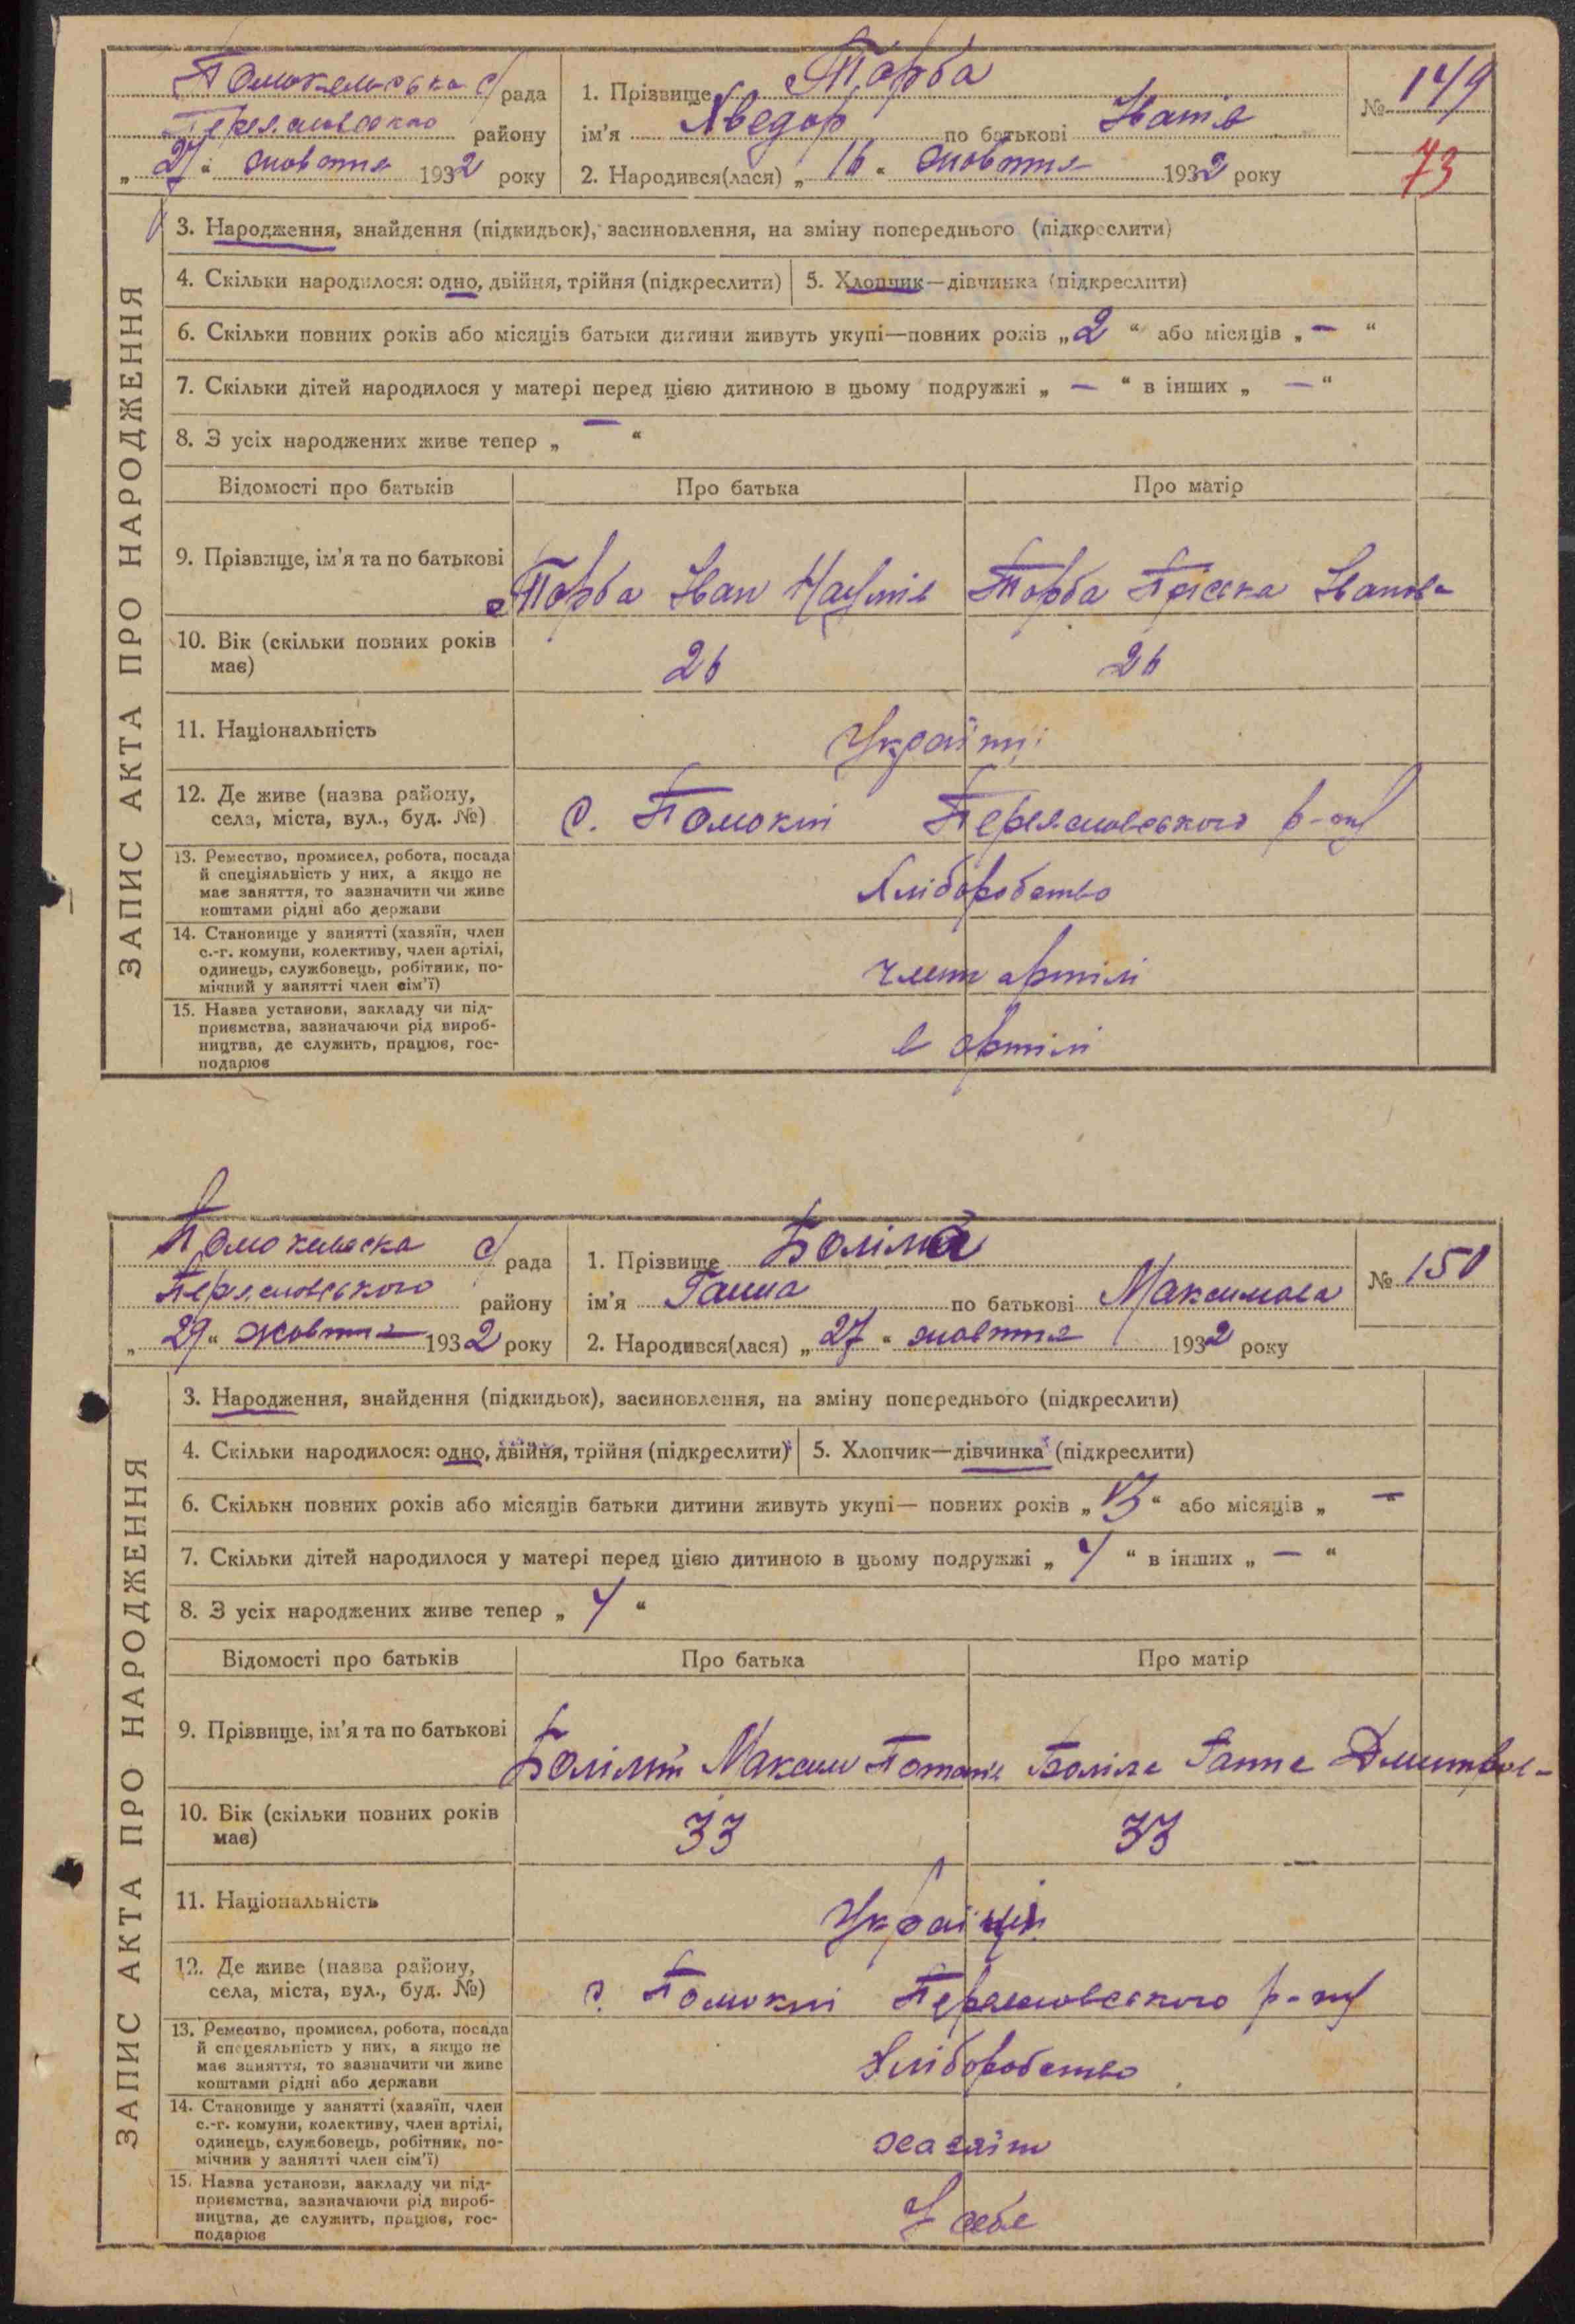 Помокельська с/рада
Переяславського району
„27“ жовтня 1932 року
1. Прізвище Торба
ім'я Хведор по батькові Іванів
2. Народився(лася) „16“ жовтня 1932 року
№ 149
73
ЗАПИС АКТА ПРО НАРОДЖЕННЯ
3. Народження, знайдення (підкидьок), засиновлення, на зміну попереднього (підкреслити)
4. Скільки народилося: одно, двійня, трійня (підкреслити) 5. Хлопчик—дівчинка (підкреслити)
6. Скільки повних років або місяців батьки дитини живуть укупі—повних років „2“ або місяців „—“
7. Скільки дітей народилося у матері перед цією дитиною в цьому подружжі „—“ в інших „—“
8. З усіх народжених живе тепер „—“
Відомості про батьків Про батька Про матір
9. Прізвище, ім'я та по батькові Торба Іван Наумів Торба Пріська Іванов-
10. Вік (скільки повних років має) 26 26
11. Національність Українці
12. Де живе (назва району, села, міста, вул., буд. №) с. Помоклі Переяславського р-ну
13. Ремество, промисел, робота, посада
й спеціяльність у них, а якщо не
має заняття, то зазначити чи живе
коштами рідні або держави
Хліборобство
14. Становище у занятті (хазяїн, член
с.-г. комуни, колективу, член артілі,
одинець, службовець, робітник, по-
мічний у занятті член сім'ї)
член артілі
15. Назва установи, закладу чи під-
приємства, зазначаючи рід вироб-
ництва, де служить, працює, гос-
подарює
в артілі
Помокельска с/рада
Переяславського району
„29“ жовтня 1932 року
1. Прізвище Боліла
ім'я Ганна по батькові Максимова
2. Народився(лася) „27“ жовтня 1932 року
№ 150
ЗАПИС АКТА ПРО НАРОДЖЕННЯ
3. Народження, знайдення (підкидьок), засиновлення, на зміну попереднього (підкреслити)
4. Скільки народилося: одно, двійня, трійня (підкреслити) 5. Хлопчик—дівчинка (підкреслити)
6. Скільки повних років або місяців батьки дитини живуть укупі— повних років „13“ або місяців „—“
7. Скільки дітей народилося у матері перед цією дитиною в цьому подружжі „4“ в інших „—“
8. З усіх народжених живе тепер „4“
Відомості про батьків Про батька Про матір
9. Прізвище, ім'я та по батькові Болілий Максим Потапів Боліла Ганна Дмитров-
10. Вік (скільки повних років має) 33 33
11. Національність Українці
12. Де живе (назва району, села, міста, вул., буд. №) с. Помоклі Переяславського р-ну
13. Ремество, промисел, робота, посада
й спеціяльність у них, а якщо не
має заняття, то зазначити чи живе
коштами рідні або держави
Хліборобство
14. Становище у занятті (хазяїн, член
с.-г. комуни, колективу, член артілі,
одинець, службовець, робітник, по-
мічний у занятті член сім'ї)
хазяїн
15. Назва установи, закладу чи під-
приємства, зазначаючи рід вироб-
ництва, де служить, працює, гос-
подарює
У себе